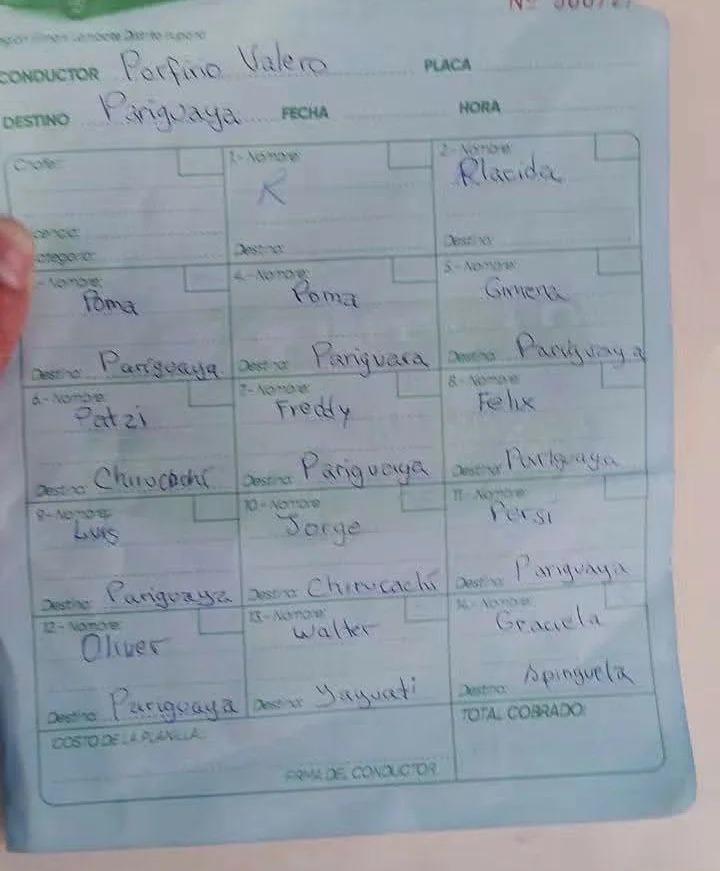 Nº 000727
CONDUCTOR Porfirio Valero PLACA
DESTINO Pariguaya FECHA HORA
Chofer: 1.- Nombre: 2.- Nombre:
R Placida
Licencia:
Categoria: Destino: Destino:
3.- Nombre: 4.- Nombre: 5.- Nombre:
Poma Poma Gimena
Destino: Pariguaya Destino: Pariguara Destino: Pariguaya
6.- Nombre: 7.- Nombre: 8.- Nombre:
Patzi Freddy Felix
Destino: Chirucachi Destino: Pariguaya Destino: Pariguaya
9.- Nombre: 10.- Nombre: 11.- Nombre:
Luis Jorge Persi
Destino: Pariguaya Destino: Chirucachi Destino: Pariguaya
12.- Nombre: 13.- Nombre: 14.- Nombre:
Oliver Walter Graciela
Destino: Pariguaya Destino: Yayuati Destino: Apinguela
COSTO DE LA PLANILLA: TOTAL COBRADO:
FIRMA DEL CONDUCTOR